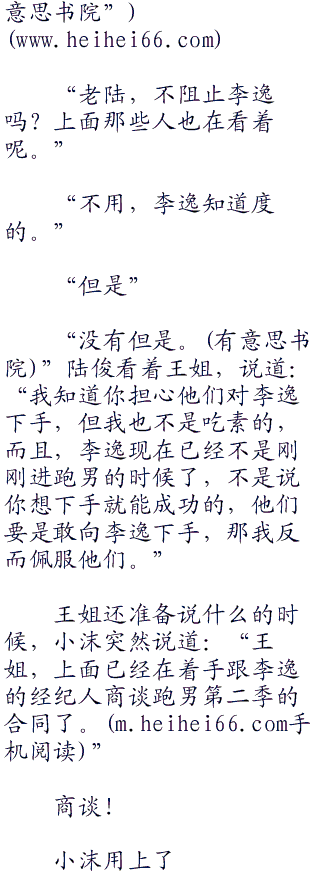 意思书院”)
(www.heihei66.com)
“老陆，不阻止李逸
吗？上面那些人也在看着
呢。”
“不用，李逸知道度
的。”
“但是”
“没有但是。(有意思书
院)”陆俊看着王姐，说道：
“我知道你担心他们对李逸
下手，但我也不是吃素的，
而且，李逸现在已经不是刚
刚进跑男的时候了，不是说
你想下手就能成功的，他们
要是敢向李逸下手，那我反
而佩服他们。”
王姐还准备说什么的时
候，小沫突然说道：“王
姐，上面已经在着手跟李逸
的经纪人商谈跑男第二季的
合同了。(m.heihei66.com手
机阅读)”
商谈！
小沫用上了